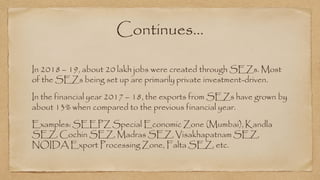 Continues...
In 2018 – 19, about 20 lakh jobs were created through SEZs. Most
of the SEZs being set up are primarily private investment-driven.
In the financial year 2017 – 18, the exports from SEZs have grown by
about 15% when compared to the previous financial year.
Examples: SEEPZ Special Economic Zone (Mumbai), Kandla
SEZ, Cochin SEZ, Madras SEZ, Visakhapatnam SEZ,
NOIDA Export Processing Zone, Falta SEZ, etc.